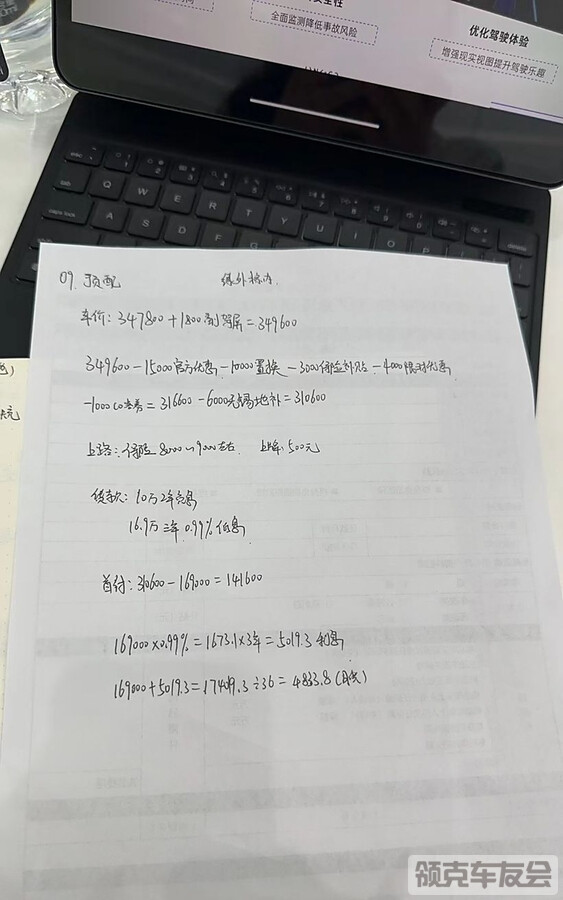 全面监测降低事故风险
优化驾驶体验
增强现实视图提升驾驶乐趣
esc
tab
Q W E R T Y U I O P
caps lock
A S D F G
09 顶配
车价：347800+1800副驾屏=349600
349600-15000官方优惠-10000置换-3000保险补贴-4000限时优惠
-1000co =316600-6000无锡地补=310600
上路：保险8000~9000左右 上牌500元
贷款：10万2年免息
16.9万三年0.99%低息
首付：310600-169000=141600
169000×0.99%=1673.1×3年=5019.3利息
169000+5019.3=174019.3÷36=4833.8(月供)
领克车友会